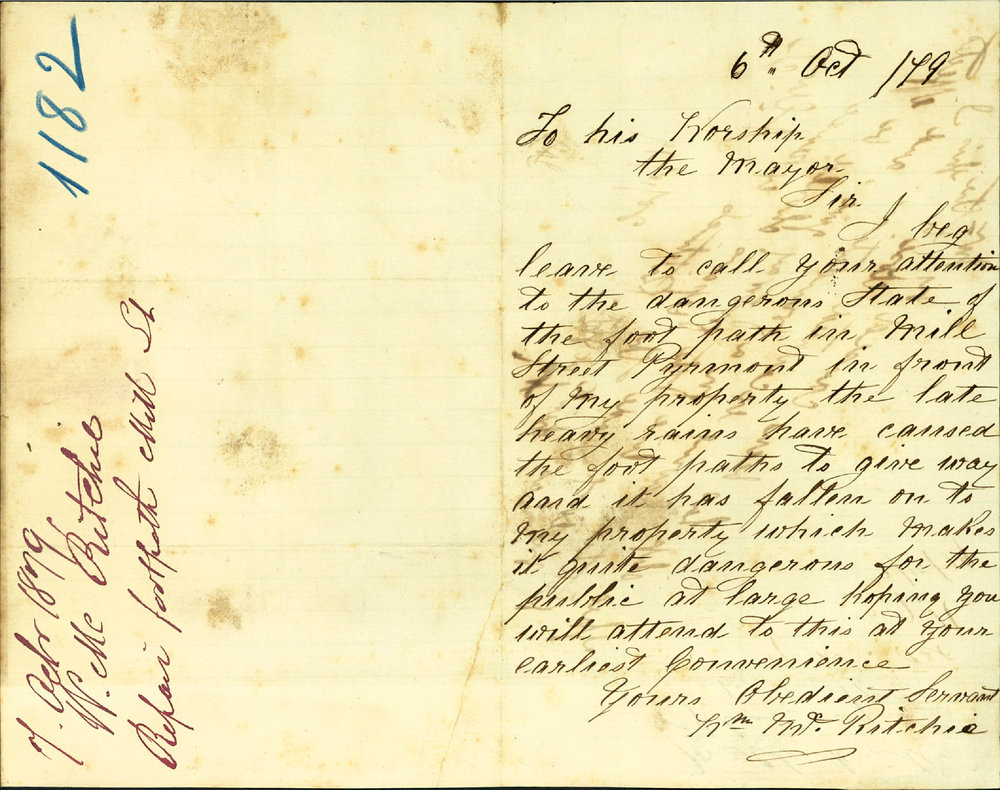 1182
7. Octr 1879
W. Mc Ritchie
Repair footpath Mill St
6th Oct /79
To his Worship
the Mayor
Sir I beg
leave to call your attention
to the dangerous State of
the foot path in Mill
Street Pyrmont in front
of my property the late
heavy rains have caused
the foot paths to give way
and it has fallen on to
my property which makes
it quite dangerous for the
public at large hoping you
will attend to this at your
earliest Convenience
Yours Obedient Servant
Wm Mc. Ritchie